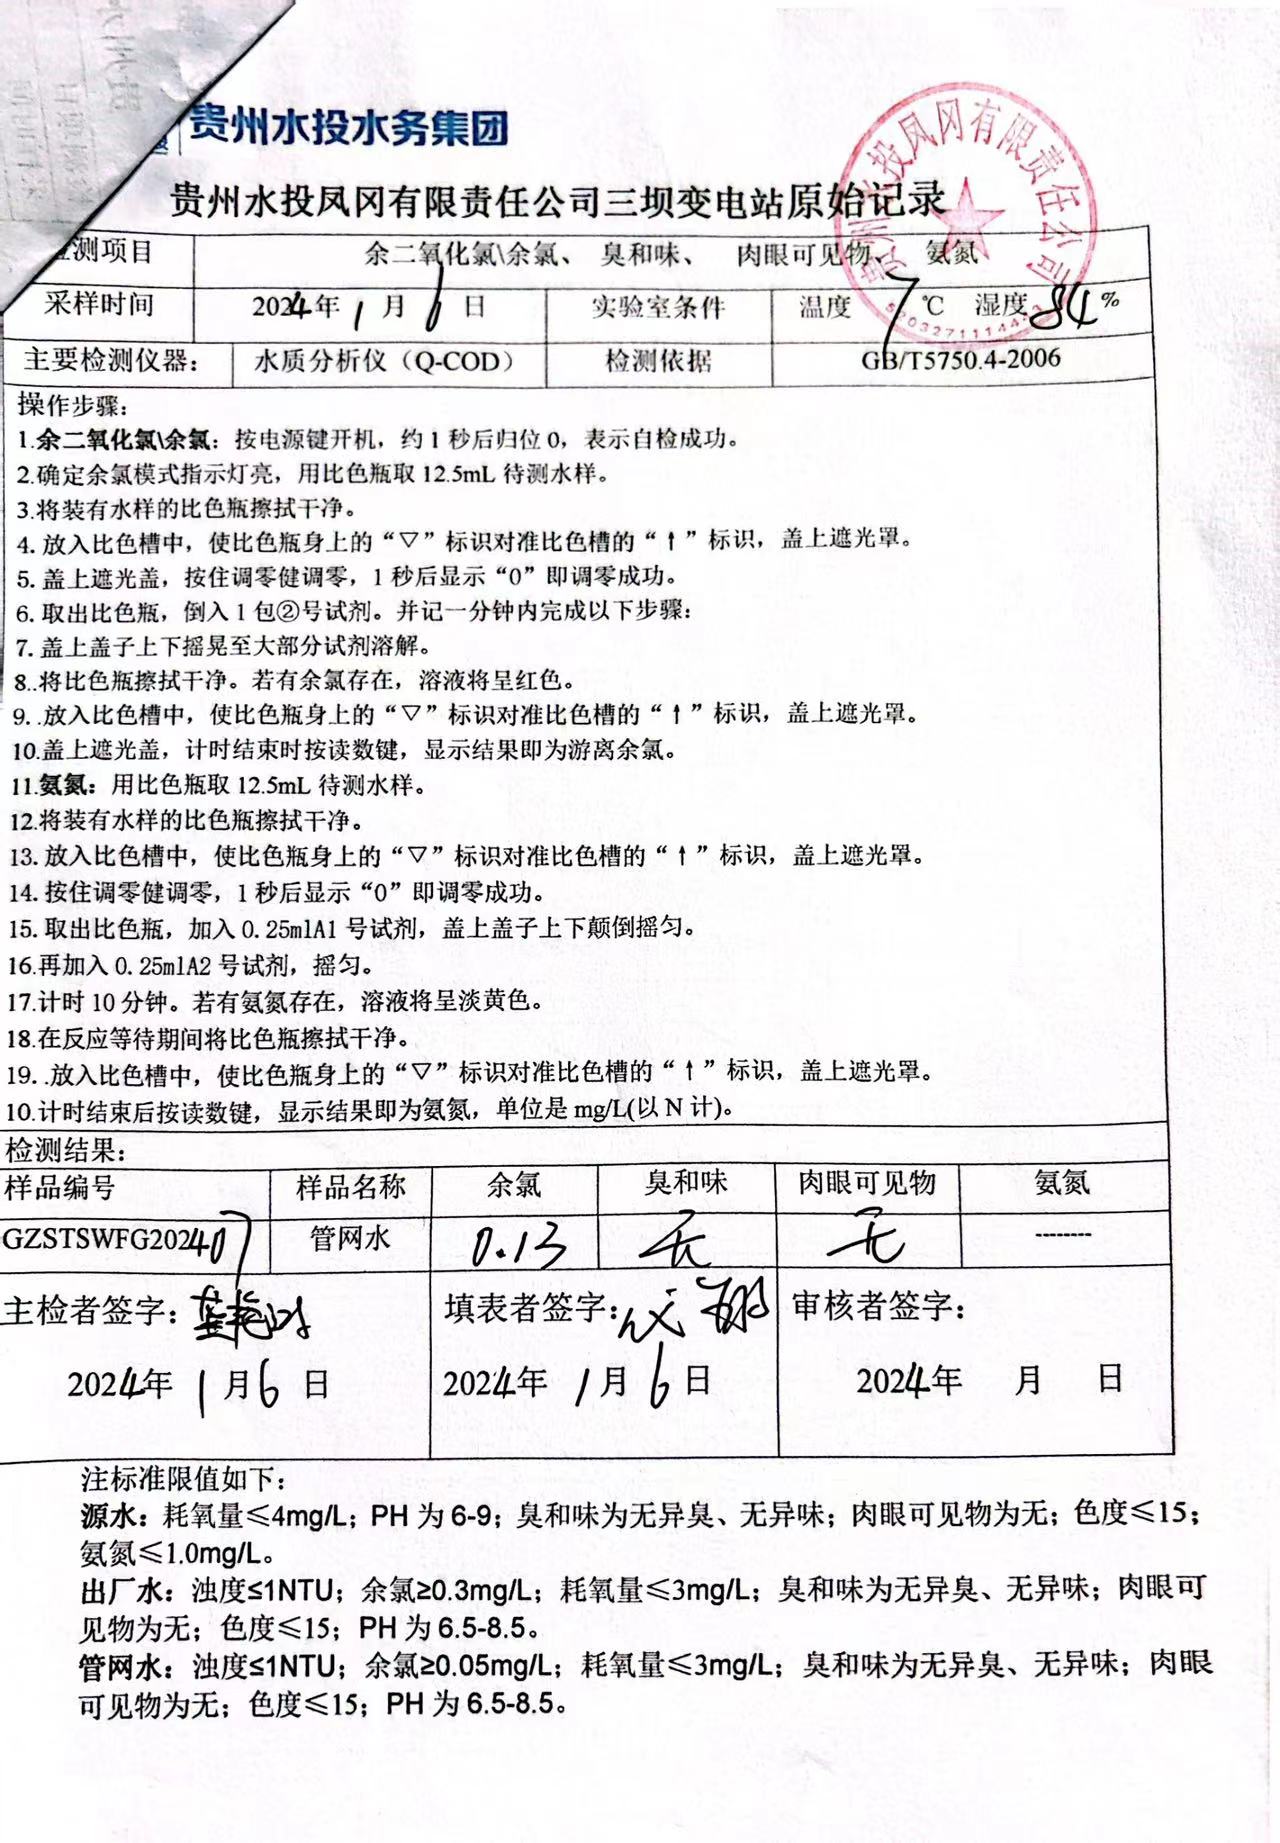 贵州水投水务集团
贵州水投凤冈有限责任公司三坝变电站原始记录
测项目 余二氧化氯\余氯、 臭和味、 肉眼可见物、 氨氮
采样时间 2024年 1 月 6 日 实验室条件 温度 7 ℃ 湿度 84 %
主要检测仪器： 水质分析仪（Q-COD） 检测依据 GB/T5750.4-2006
操作步骤：
1.余二氧化氯\余氯：按电源键开机，约 1 秒后归位 0，表示自检成功。
2.确定余氯模式指示灯亮，用比色瓶取 12.5mL 待测水样。
3.将装有水样的比色瓶擦拭干净。
4. 放入比色槽中，使比色瓶身上的“▽”标识对准比色槽的“↑”标识，盖上遮光罩。
5. 盖上遮光盖，按住调零健调零，1 秒后显示“0”即调零成功。
6. 取出比色瓶，倒入 1 包②号试剂。并记一分钟内完成以下步骤：
7. 盖上盖子上下摇晃至大部分试剂溶解。
8..将比色瓶擦拭干净。若有余氯存在，溶液将呈红色。
9. .放入比色槽中，使比色瓶身上的“▽”标识对准比色槽的“↑”标识，盖上遮光罩。
10.盖上遮光盖，计时结束时按读数键，显示结果即为游离余氯。
11.氨氮：用比色瓶取 12.5mL 待测水样。
12.将装有水样的比色瓶擦拭干净。
13. 放入比色槽中，使比色瓶身上的“▽”标识对准比色槽的“↑”标识，盖上遮光罩。
14. 按住调零健调零，1 秒后显示“0”即调零成功。
15. 取出比色瓶，加入 0.25mlA1 号试剂，盖上盖子上下颠倒摇匀。
16.再加入 0.25mlA2 号试剂，摇匀。
17.计时 10 分钟。若有氨氮存在，溶液将呈淡黄色。
18.在反应等待期间将比色瓶擦拭干净。
19. .放入比色槽中，使比色瓶身上的“▽”标识对准比色槽的“↑”标识，盖上遮光罩。
10.计时结束后按读数键，显示结果即为氨氮，单位是 mg/L(以 N 计)。
检测结果：
样品编号 样品名称 余氯 臭和味 肉眼可见物 氨氮
GZSTSWFG202407 管网水 0.13 无 无 --------
主检者签字： 填表者签字： 审核者签字：
2024年 1 月 6 日 2024年 1 月 6 日 2024年 月 日
注标准限值如下：
源水：耗氧量≤4mg/L；PH 为 6-9；臭和味为无异臭、无异味；肉眼可见物为无；色度≤15；
氨氮≤1.0mg/L。
出厂水：浊度≤1NTU；余氯≥0.3mg/L；耗氧量≤3mg/L；臭和味为无异臭、无异味；肉眼可
见物为无；色度≤15；PH 为 6.5-8.5。
管网水：浊度≤1NTU；余氯≥0.05mg/L；耗氧量≤3mg/L；臭和味为无异臭、无异味；肉眼
可见物为无；色度≤15；PH 为 6.5-8.5。